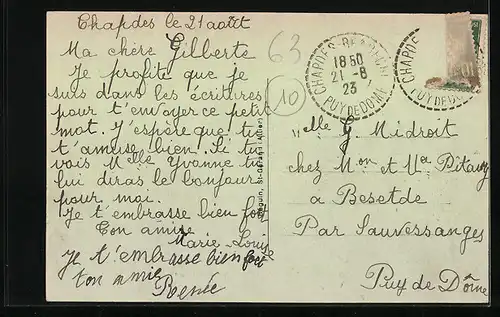 Chapdes le 21 aout
Ma chère Gilberte
Je profite que je
suis dans les écritures
pour t'envoyer ce petit
mot. J'espère que tu
t'amuse bien. Si tu
vois Melle Yvonne tu
lui diras le bonjour
pour moi.
Je t'embrasse bien fort
Ton amie
Marie Louise
Je t'embrasse bien fort
ton amie
Renée
63
10
CHAPDES-BEAUFORT
18 50
21 -8
23
PUY DE DOME
CHAPDE
PUY DE DOME
St-Gérand (Allier)
Melle G. Midroit
chez Mon et Ma Pitavy
a Besetde
Par Sauvessanges
Puy de Dôme